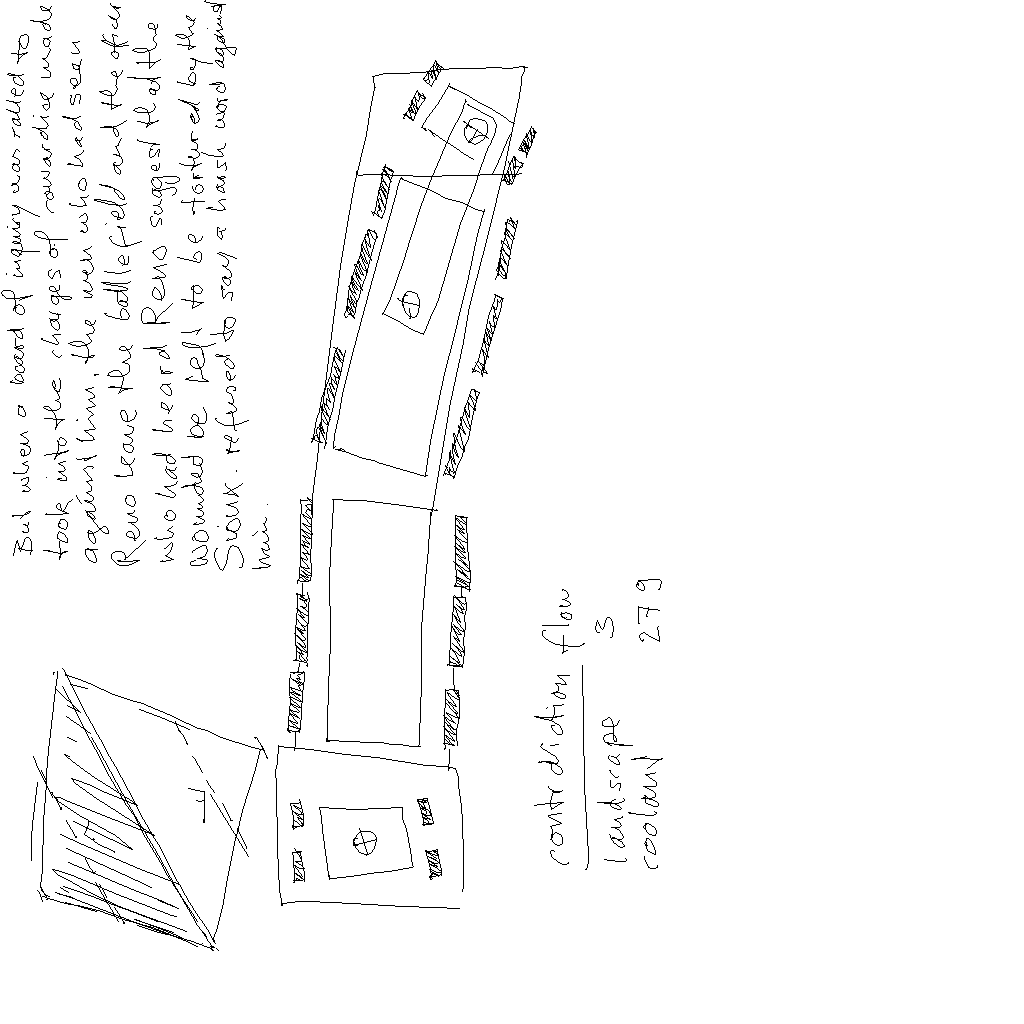 But when a board of inquiry was called to
look into the charges of cowardice made
against him, the men who had seen
Reno leave the battlefield and the officer
who had heard Reno suggest that the
wounded be left to be tortured by the
Sioux. refused to say a harsh word against
him.
contradiction flow
landscape 3
coolant 279